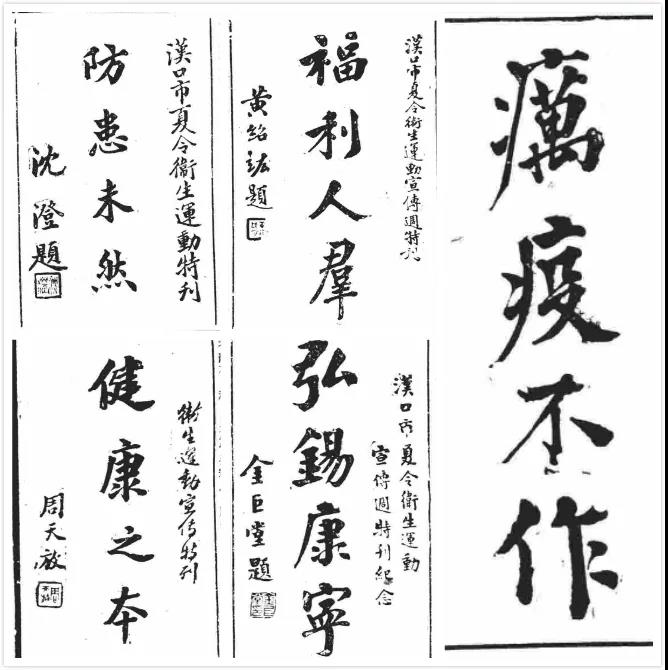 癘疫不作
漢口市夏令衞生運動宣傳週特刊
福利人羣
黄紹竑題
漢口市夏令衞生運動特刊
防患未然
沈澄題
漢口市夏令衞生運動
宣傳週特刊紀念
弘錫康寧
金巨堂題
衞生運動宣傳特刊
健康之本
周天放